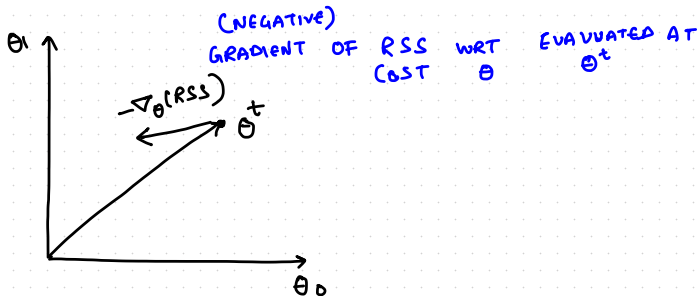 (NEGATIVE)
GRADIENT OF RSS WRT EVALUATED AT
COST θ θᵗ
θ₁
-∇θ(RSS)
θᵗ
θ₀